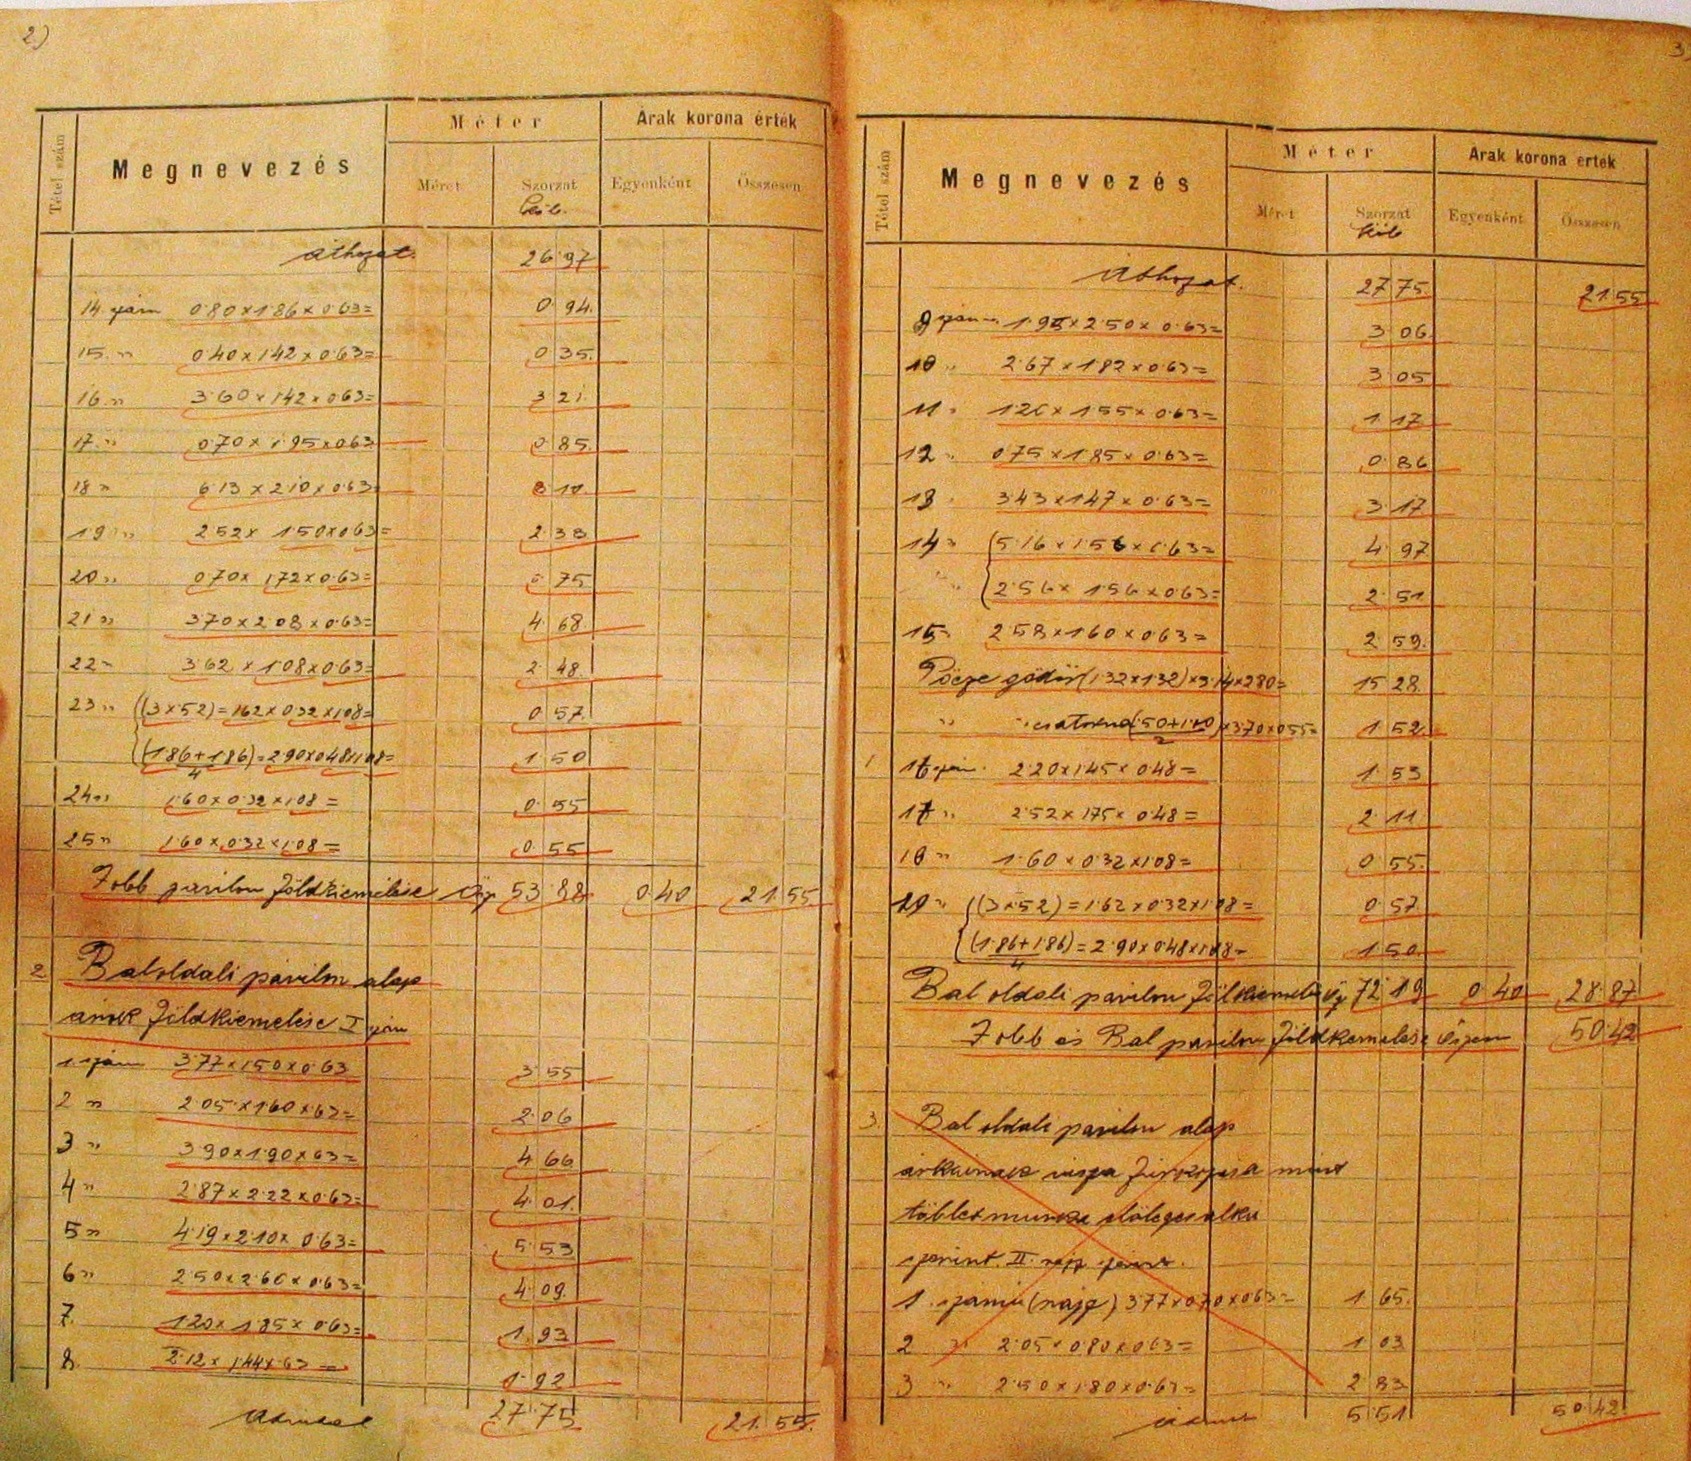 2)
Tétel szám
Megnevezés
Méter
Árak korona érték
Méret
Szorzat
Köb.
Egyenként
Összesen
Áthozat. 26 97
14 szám 0·80×1·86×0·63= 0 94.
15. " 0·40×1·42×0·63= 0 35.
16. " 3·60×1·42×0·63= 3 21.
17. " 0·70×1·95×0·63 0 85.
18 " 6·13×2·10×0·63= 8 10.
19 " 2·52×1·50×0·63= 2·38
20 " 0·70×1·72×0·63= 0·75
21 " 3·70×2·08×0·63= 4·68.
22 " 3·62×1·08×0·63= 2·48.
23 " ((3×52)=1·62×0·32×1·08= 0·57.
(1·86+1·86)=2·90×0·48×1·08= 1·50
4
24 " 1·60×0·32×1·08= 0·55
25 " 1·60×0·32×1·08= 0·55
Jobb pavilon földkiemelése 53 88 0·40 21 55
2 Baloldali pavilon alap
árok földkiemelése I szám
1 szám 3·77×1·50×0·63 3·55
2 " 2·05×1·60×63= 2·06
3 " 3·90×1·90×63= 4 66
4 " 2·87×2·22×0·63= 4·01.
5 " 4·19×2·10×0·63= 5·53
6 " 2·50×2·60×0·63= 4·09.
7. 1·20×1·85×0·63= 1·93
8. 2·12×1·44×63= 1·92
27·75 21·55.
3
Tétel szám
Megnevezés
Méter
Árak korona érték
Méret
Szorzat
Köb
Egyenként
Összesen
Áthozat. 27 75 21 55
9 szám 1·95×2·50×0·63= 3 06
10 " 2·67×1·82×0·63= 3 05
11 " 1·20×1·55×0·63= 1·17
12 " 0·75×1·85×0·63= 0·86
13 " 3·43×1·47×0·63= 3·17
14 " (5·16×1·56×0·63= 4·97
" (2·56×1·56×0·63= 2·51
15 " 2·58×1·60×0·63= 2 59.
Pöcze gödör (1·32×1·32)×3·14×2·80= 15 28
" " csatorna (·50+1·10)×3·70×0·55= 1 52
2
16 szám 2·20×1·45×0·48= 1·53
17 " 2·52×1·75×0·48= 2 11
18 " 1·60×0·32×1·08= 0 55.
19 " ((3×52)=1·62×0·32×1·08= 0·57
(1·86+1·86)=2·90×0·48×1·08= 1·50
4
Bal oldali pavilon földkiemelés 72·19 0·40 28·87
Jobb és Bal pavilon földkiemelése 50·42
3. Bal oldali pavilon alap
árkainak vissza mint
többletmunka előleges alku
szerint II rajz szerint.
1 számú (rajz) 3·77×0·70×0·63= 1 65.
2 " 2·05×0·80×0·63= 1 03
3 " 2·50×1·80×0·63= 2 83
5 51 50 42